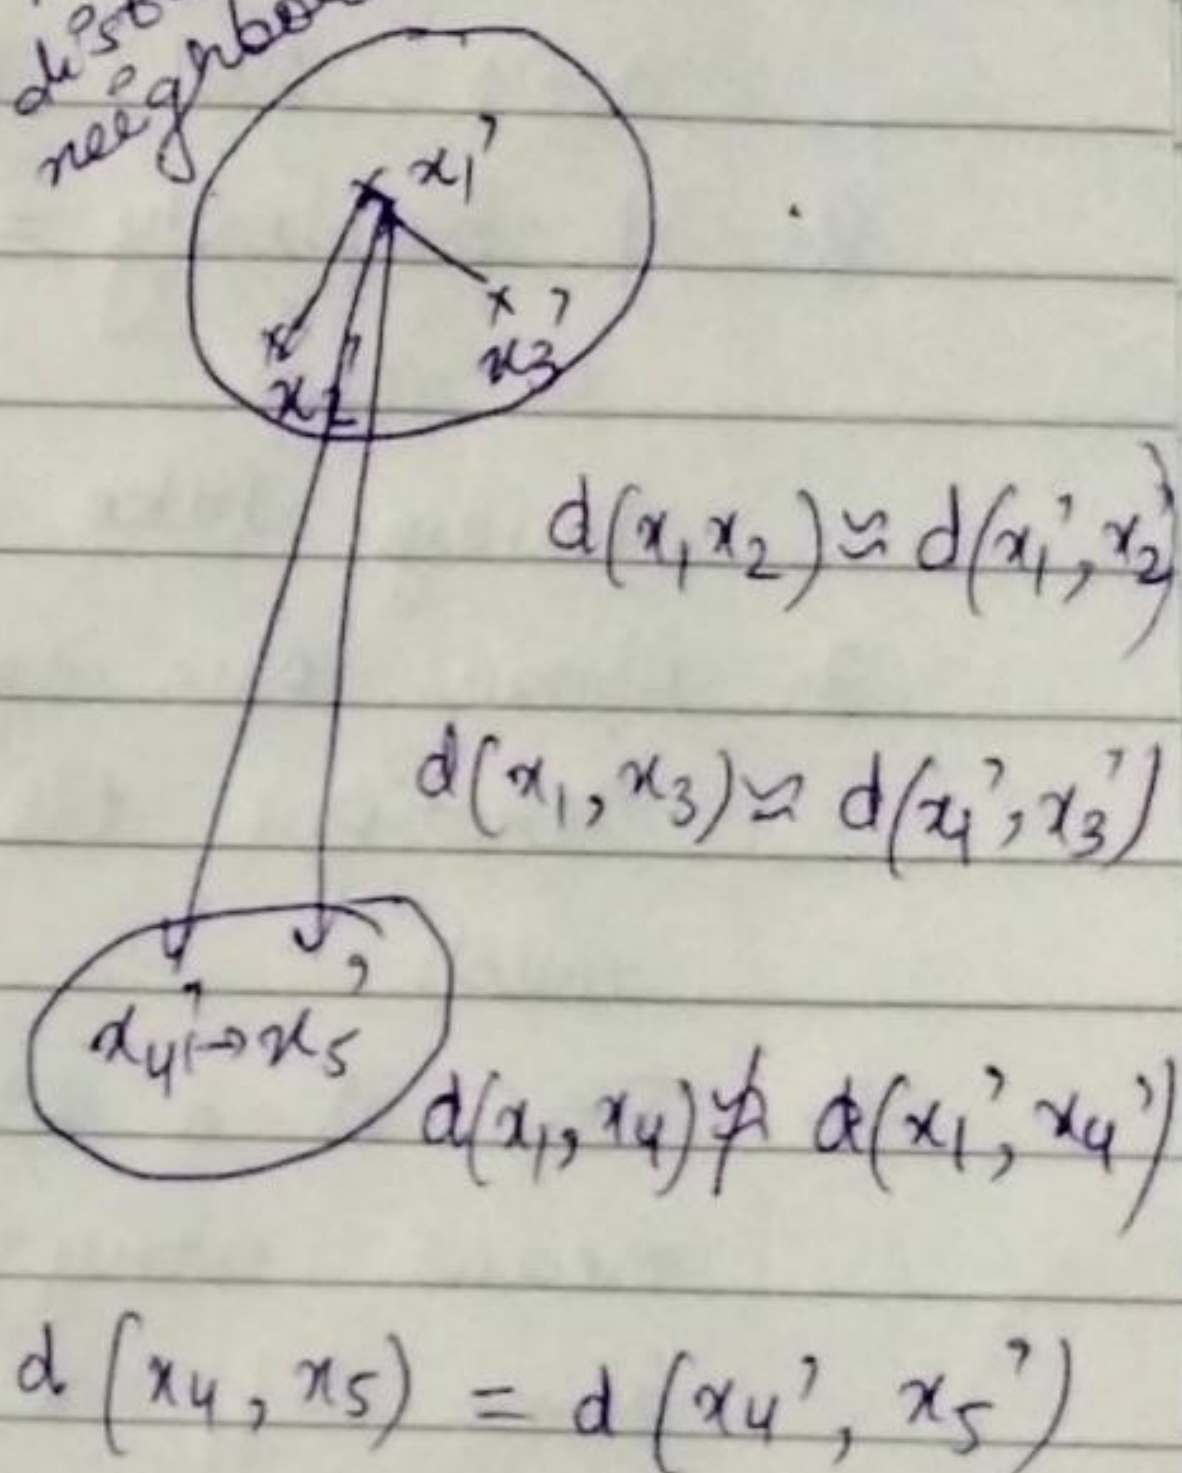 x₁'
x₂' x₃'
d(x₁x₂) ≈ d(x₁', x₂')
d(x₁, x₃) ≈ d(x₁', x₃')
x₄' → x₅'
d(x₁, x₄) ≉ d(x₁', x₄')
d(x₄, x₅) = d(x₄', x₅')